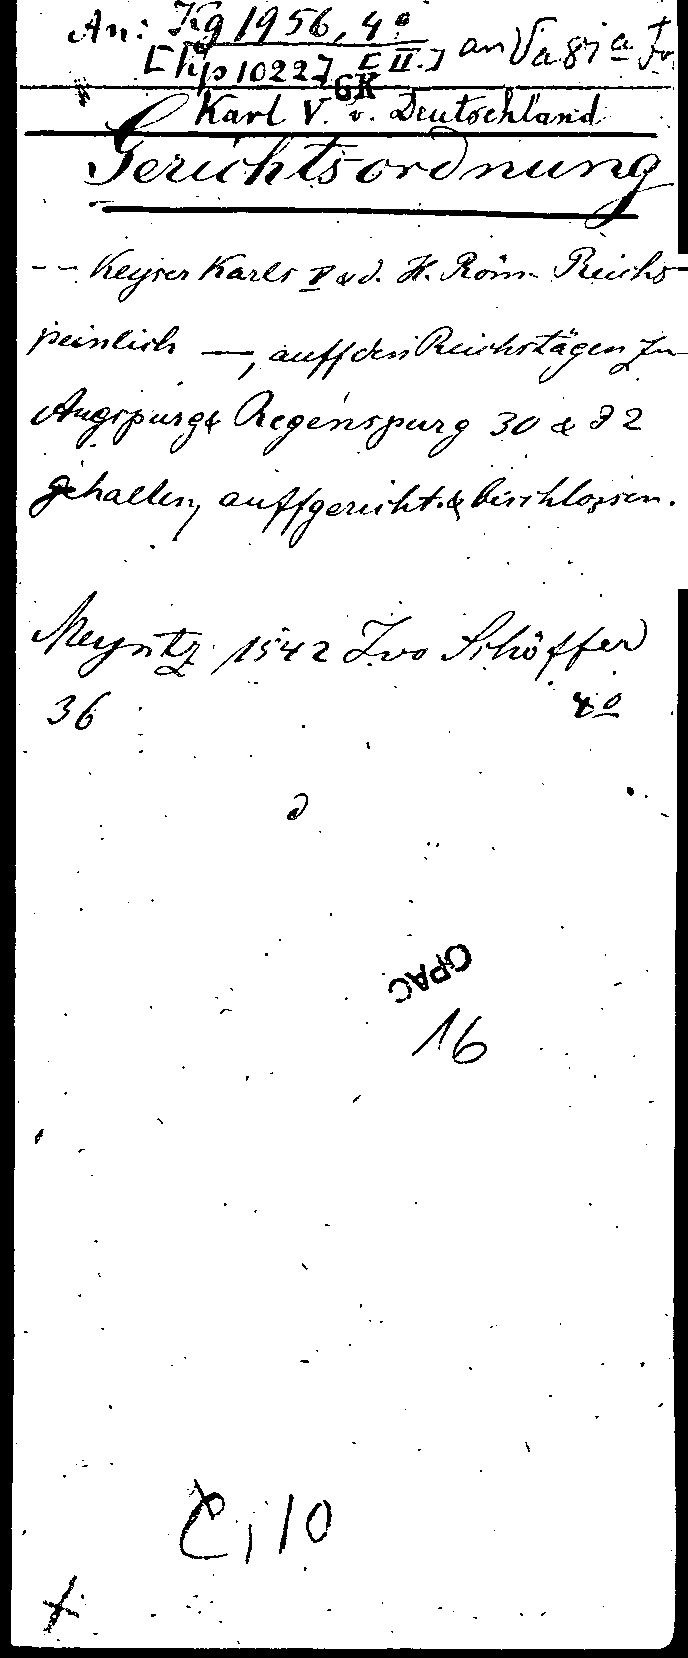 An: Kg 1956, 4º
[hp 10227, [II.] an
GK
Karl V. v. Deutschland
Gerichtsordnung
-- Keyser Karls V & d. H. Röm. Reichs
peinlich —, auff den Reichstägen zu
Augspurg & Regenspurg 30 & 32
gehalten, auffgericht & beschlossen.
Meyntz 1542 Ivo Schöffer
36 4º
OPAC
16
C, 10